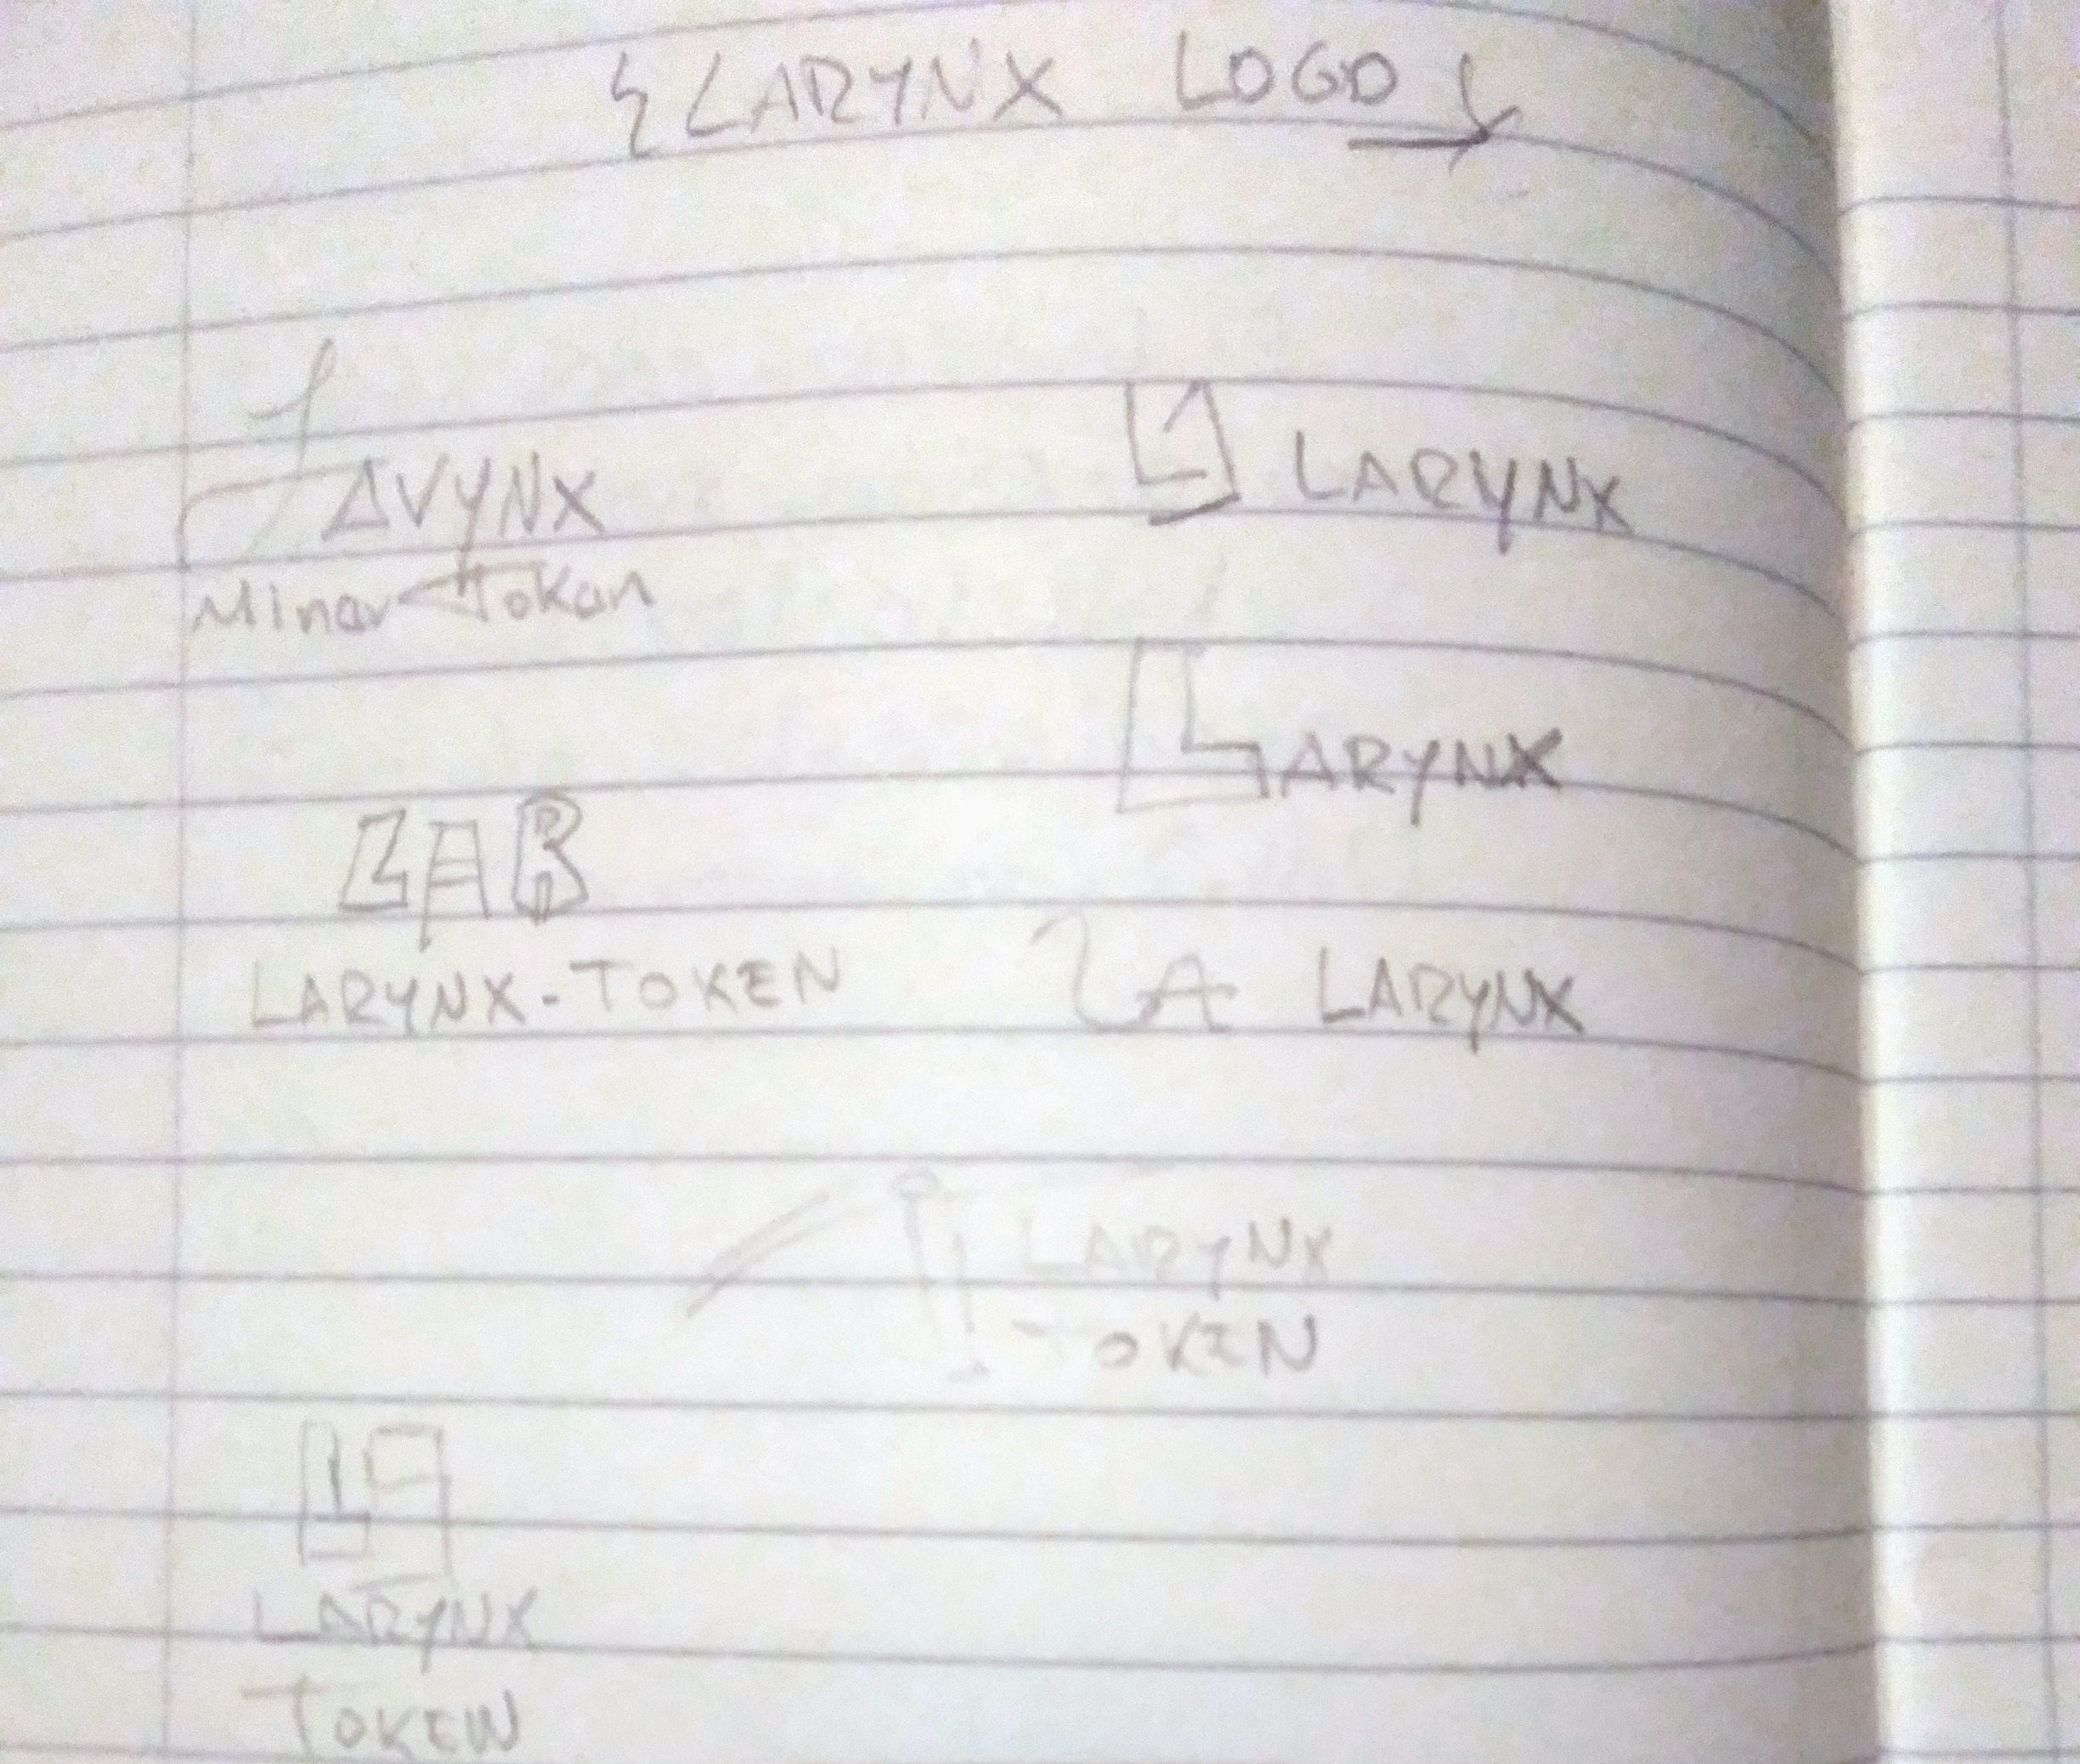 { LARYNX LOGO }
AVYNX
Minor Token
LARYNX
LARYNX
LAR
LARYNX-TOKEN
LA LARYNX
LARYNX
TOKEN
LARYNX
TOKEN